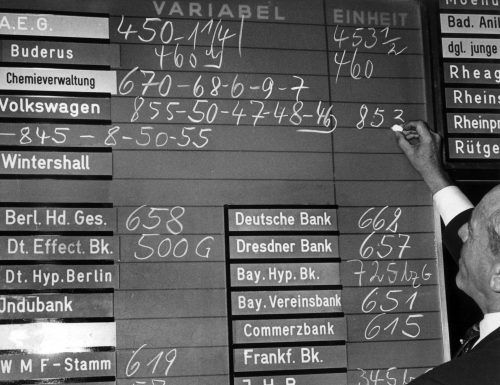 VARIABEL EINHEIT
A.E.G. 450-1 1/4 453 1/2
Buderus 460 460
Chemieverwaltung 670-68-6-9-7
Volkswagen 855-50-47-48-46 853
-845-8-50-55
Wintershall
Berl. Hd. Ges. 658
Dt. Effect. Bk. 500 G
Dt. Hyp. Berlin
Indubank
WMF-Stamm 619
Deutsche Bank 668
Dresdner Bank 657
Bay. Hyp. Bk. 725 bz G
Bay. Vereinsbank 651
Commerzbank 615
Frankf. Bk.
Bad. Anil
dgl. junge
Rheag
Rheins
Rheinpr
Rütge